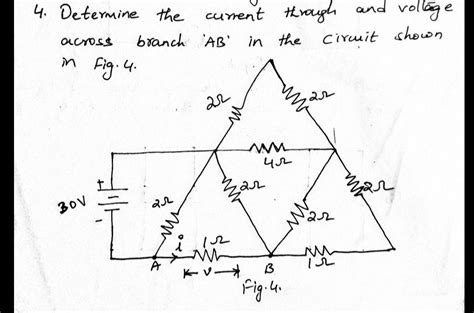 4. Determine the current through and voltage
across branch 'AB' in the circuit shown
in Fig. 4.
2Ω 2Ω
4Ω
30V + -
2Ω 2Ω 2Ω 2Ω
i 1Ω 1Ω
A V B
Fig. 4.